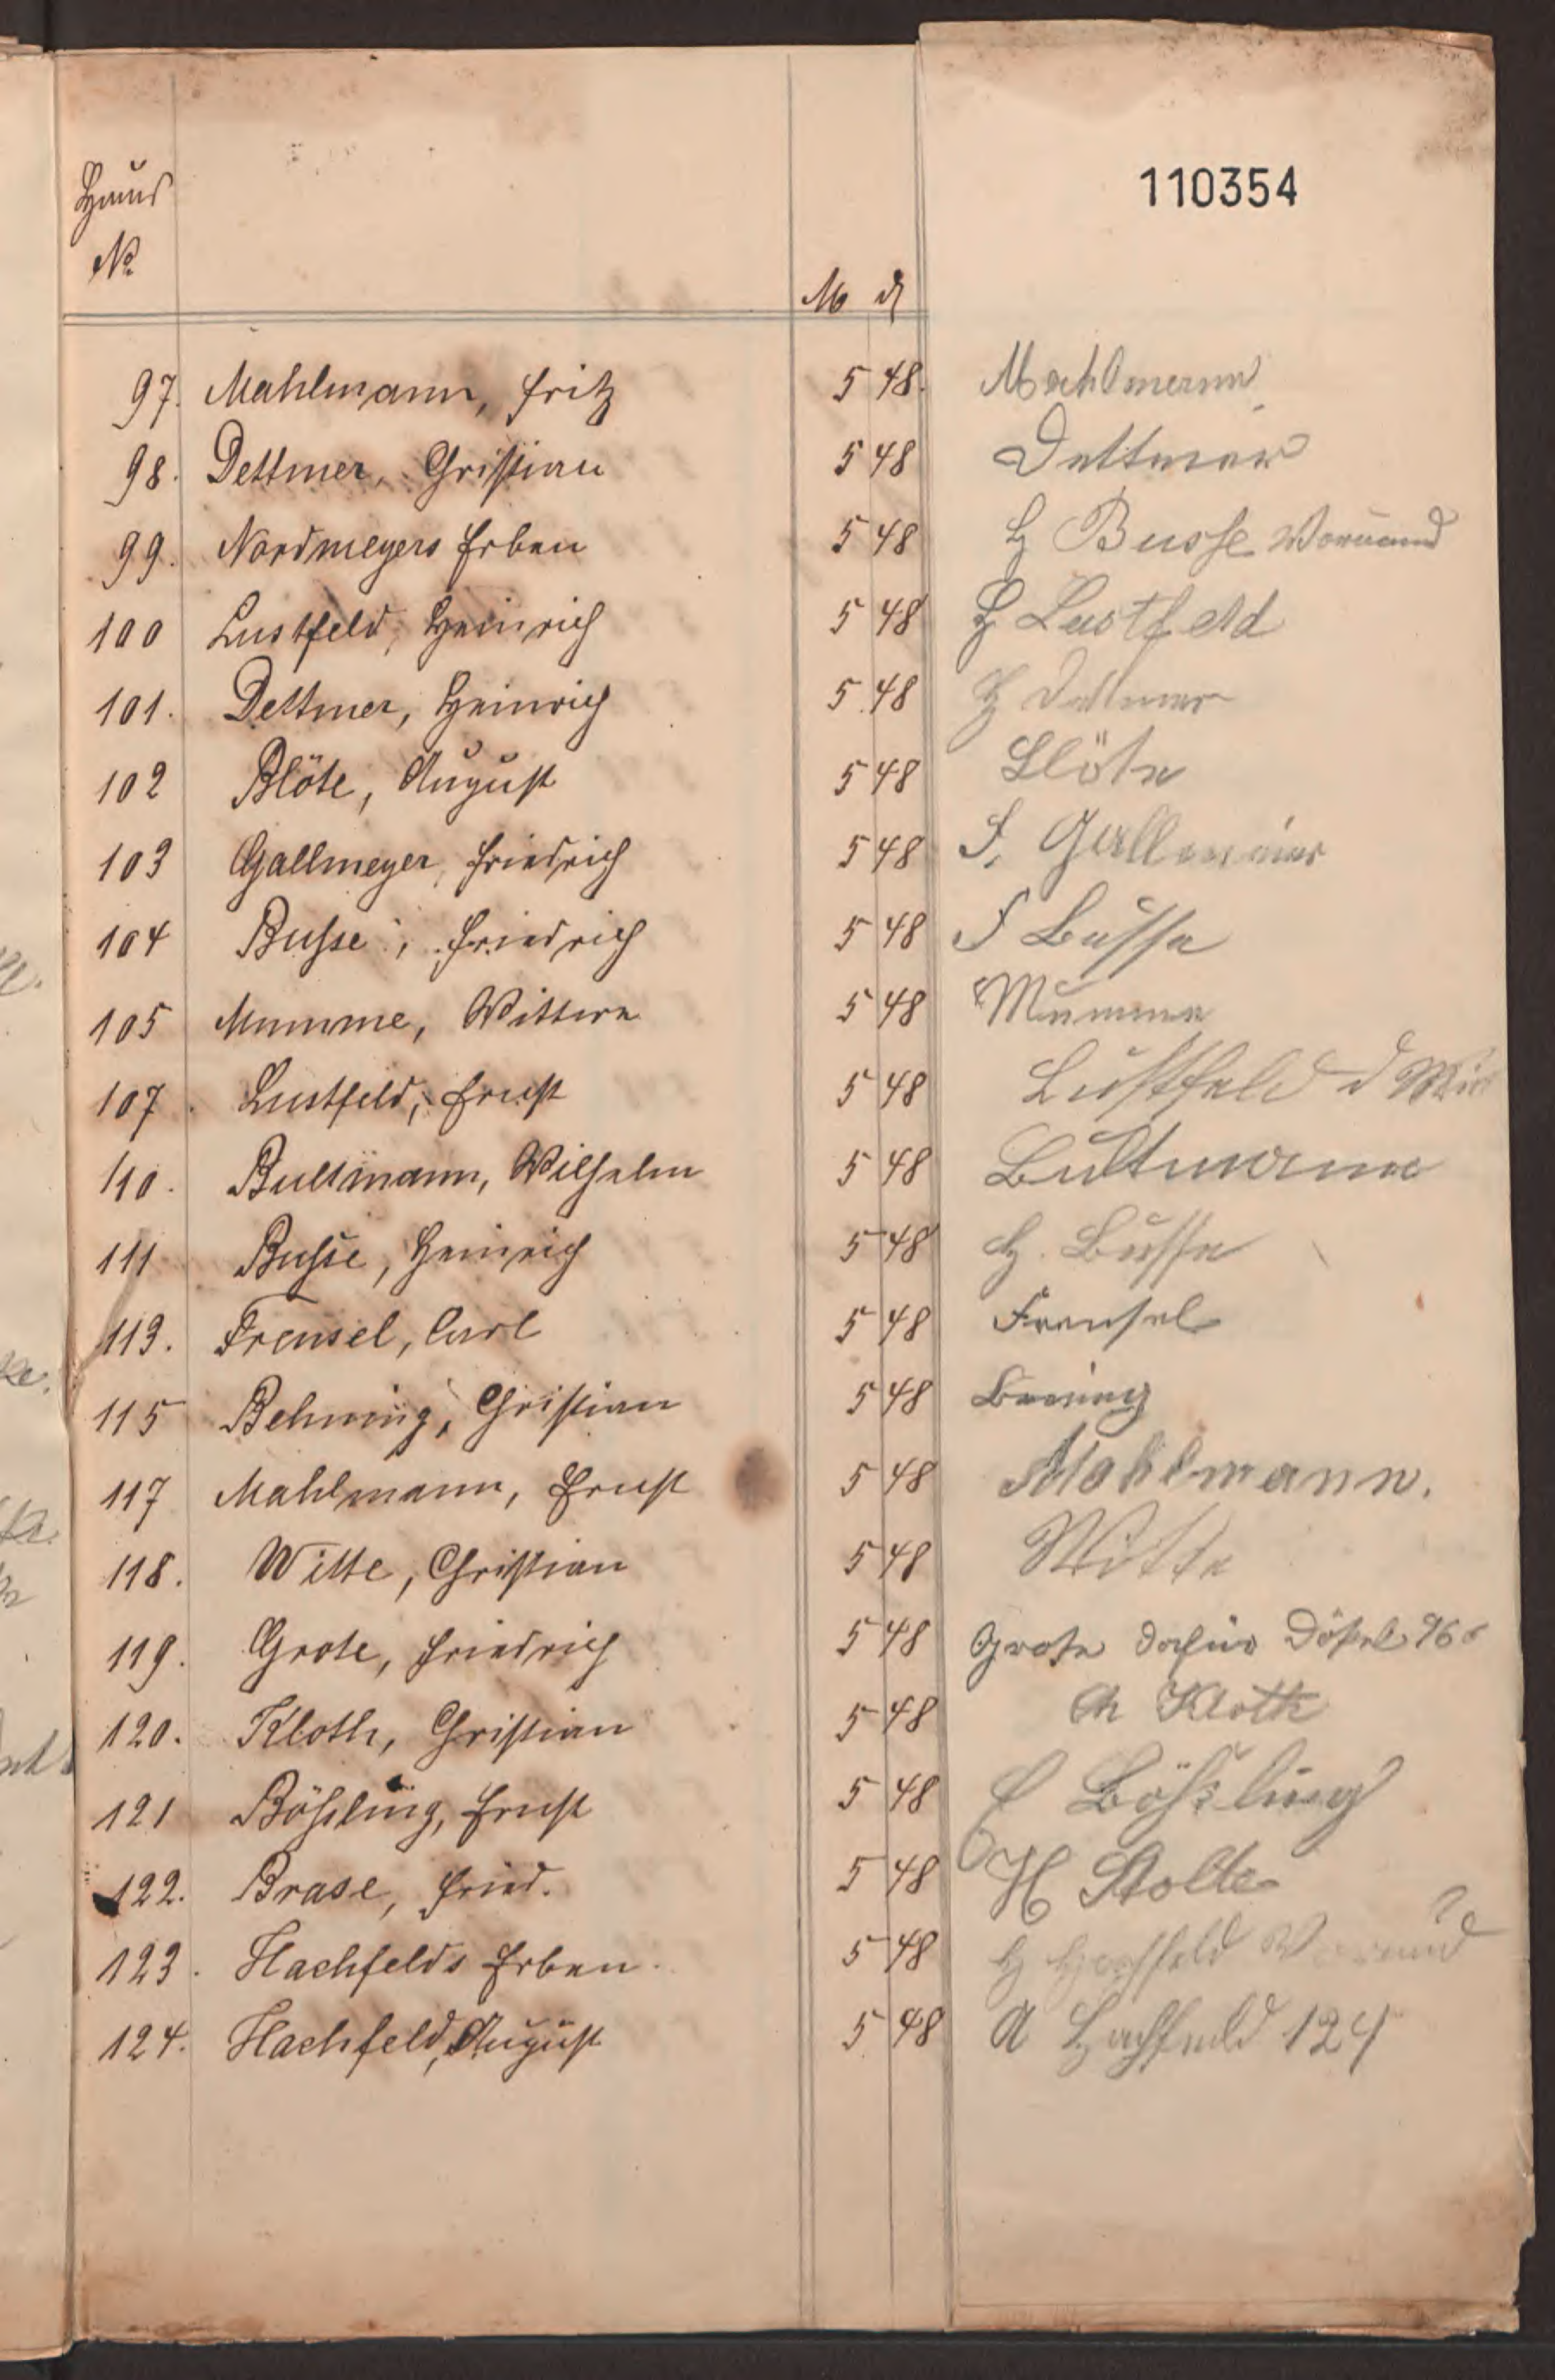 110354
Haus
No
M ₰
97. Mahlmann, Fritz 5 48. Mahlmann
98. Dettmer, Christian 5 48 Dettmer
99. Nordmeyers Erben 5 48 H Busse Vormund
100 Lustfeld, Heinrich 5 48 H Lustfeld
101. Dettmer, Heinrich 5 48 H Dettmer
102 Blöte, August 5 48 Blöte
103 Gallmeyer, Friedrich 5 48 F. Gallmeier
104 Busse, Friedrich 5 48 F Busse
105 Mumme, Wittwe 5 48 Mumme
107. Lustfeld, Ernst 5 48 Lustfeld d
110. Bultmann, Wilhelm 5 48 Bultmann
111 Busse, Heinrich 5 48 H. Busse
113. Frensel, Carl 5 48 Frensel
115 Behning, Christian 5 48 Bening
117 Mahlmann, Ernst 5 48 Mahlmann.
118. Witte, Christian 5 48 Witte
119. Grote, Friedrich 5 48 Grote dafür
120. Kloth, Christian 5 48 Ch Kloth
121 Bößling, Ernst 5 48 E Bößling
122. Brase, Fried. 5 48 H Stolte
123. Hachfelds Erben. 5 48 H Hachfeld Vormund
124. Hachfeld, August 5 48 A Hachfeld 124